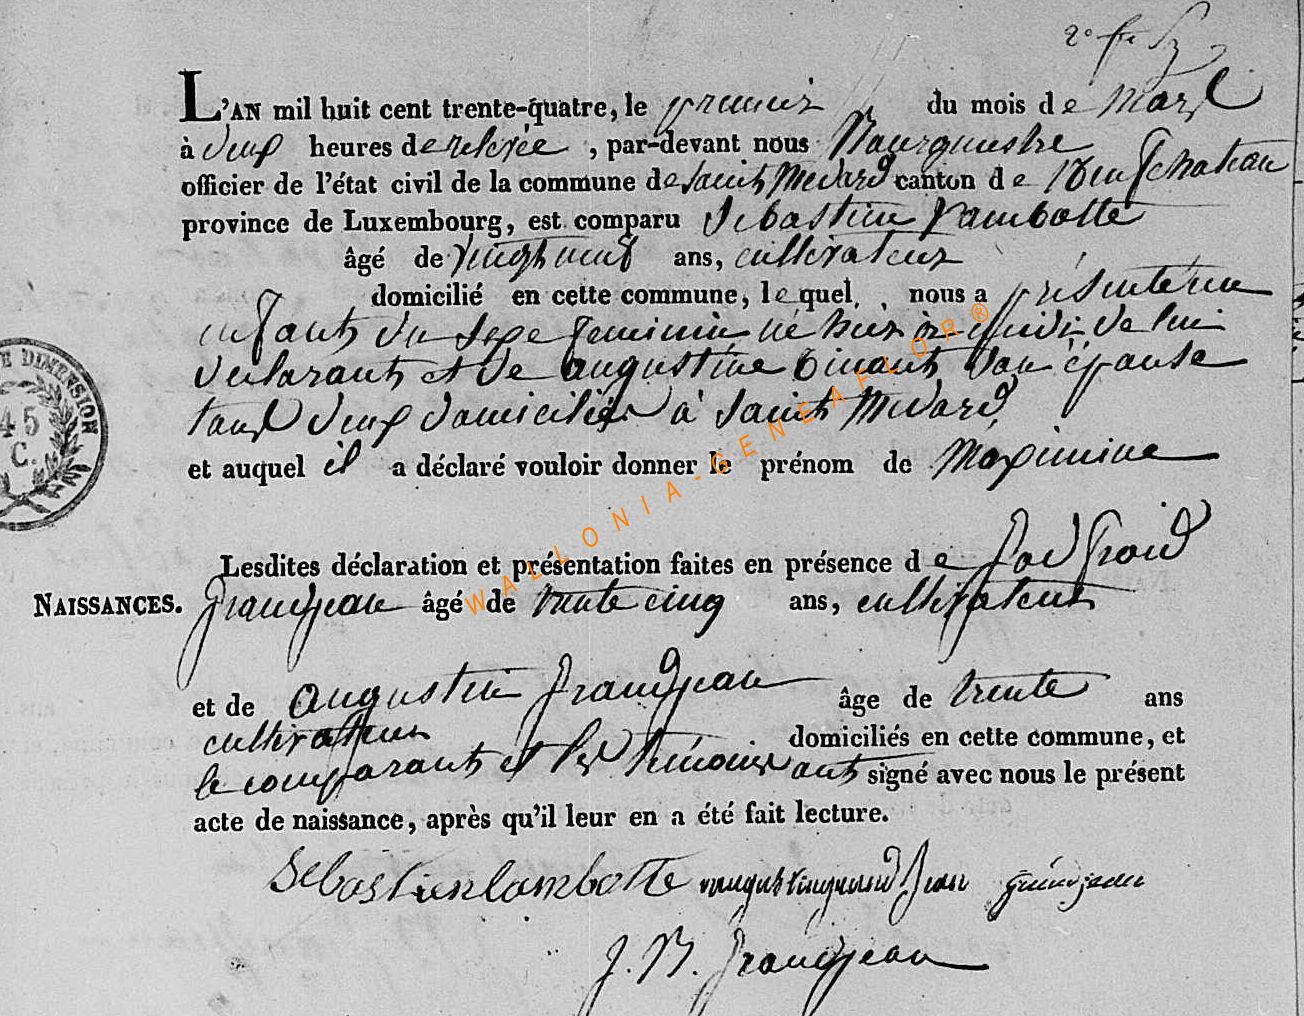 2e fe
L'AN mil huit cent trente-quatre, le premier du mois de mars
à deux heures de relevée, par-devant nous Bourgmestre
officier de l'état civil de la commune de Saint Medard canton de Neufchateau
province de Luxembourg, est comparu Sebastien Lambotte
âgé de vingt neuf ans, cultivateur
domicilié en cette commune, lequel, nous a présenté un
enfant du sexe feminin né hier à midi, de lui
declarant et de augustine Dinant son épouse
tous deux domiciliés à Saint Medard,
et auquel il a déclaré vouloir donner le prénom de Maximine
Lesdites déclaration et présentation faites en présence de Godfroid
NAISSANCES. Grandjean âgé de trente cinq ans, cultivateur
et de augustin Grandjean âge de trente ans
cultivateur domiciliés en cette commune, et
le comparant et les témoins ont signé avec nous le présent
acte de naissance, après qu'il leur en a été fait lecture.
Sebastien lambotte augustin grandjean
J. B. Grandjean
DIMENSION
45
C.
WALLONIA-GENEAFLOR®